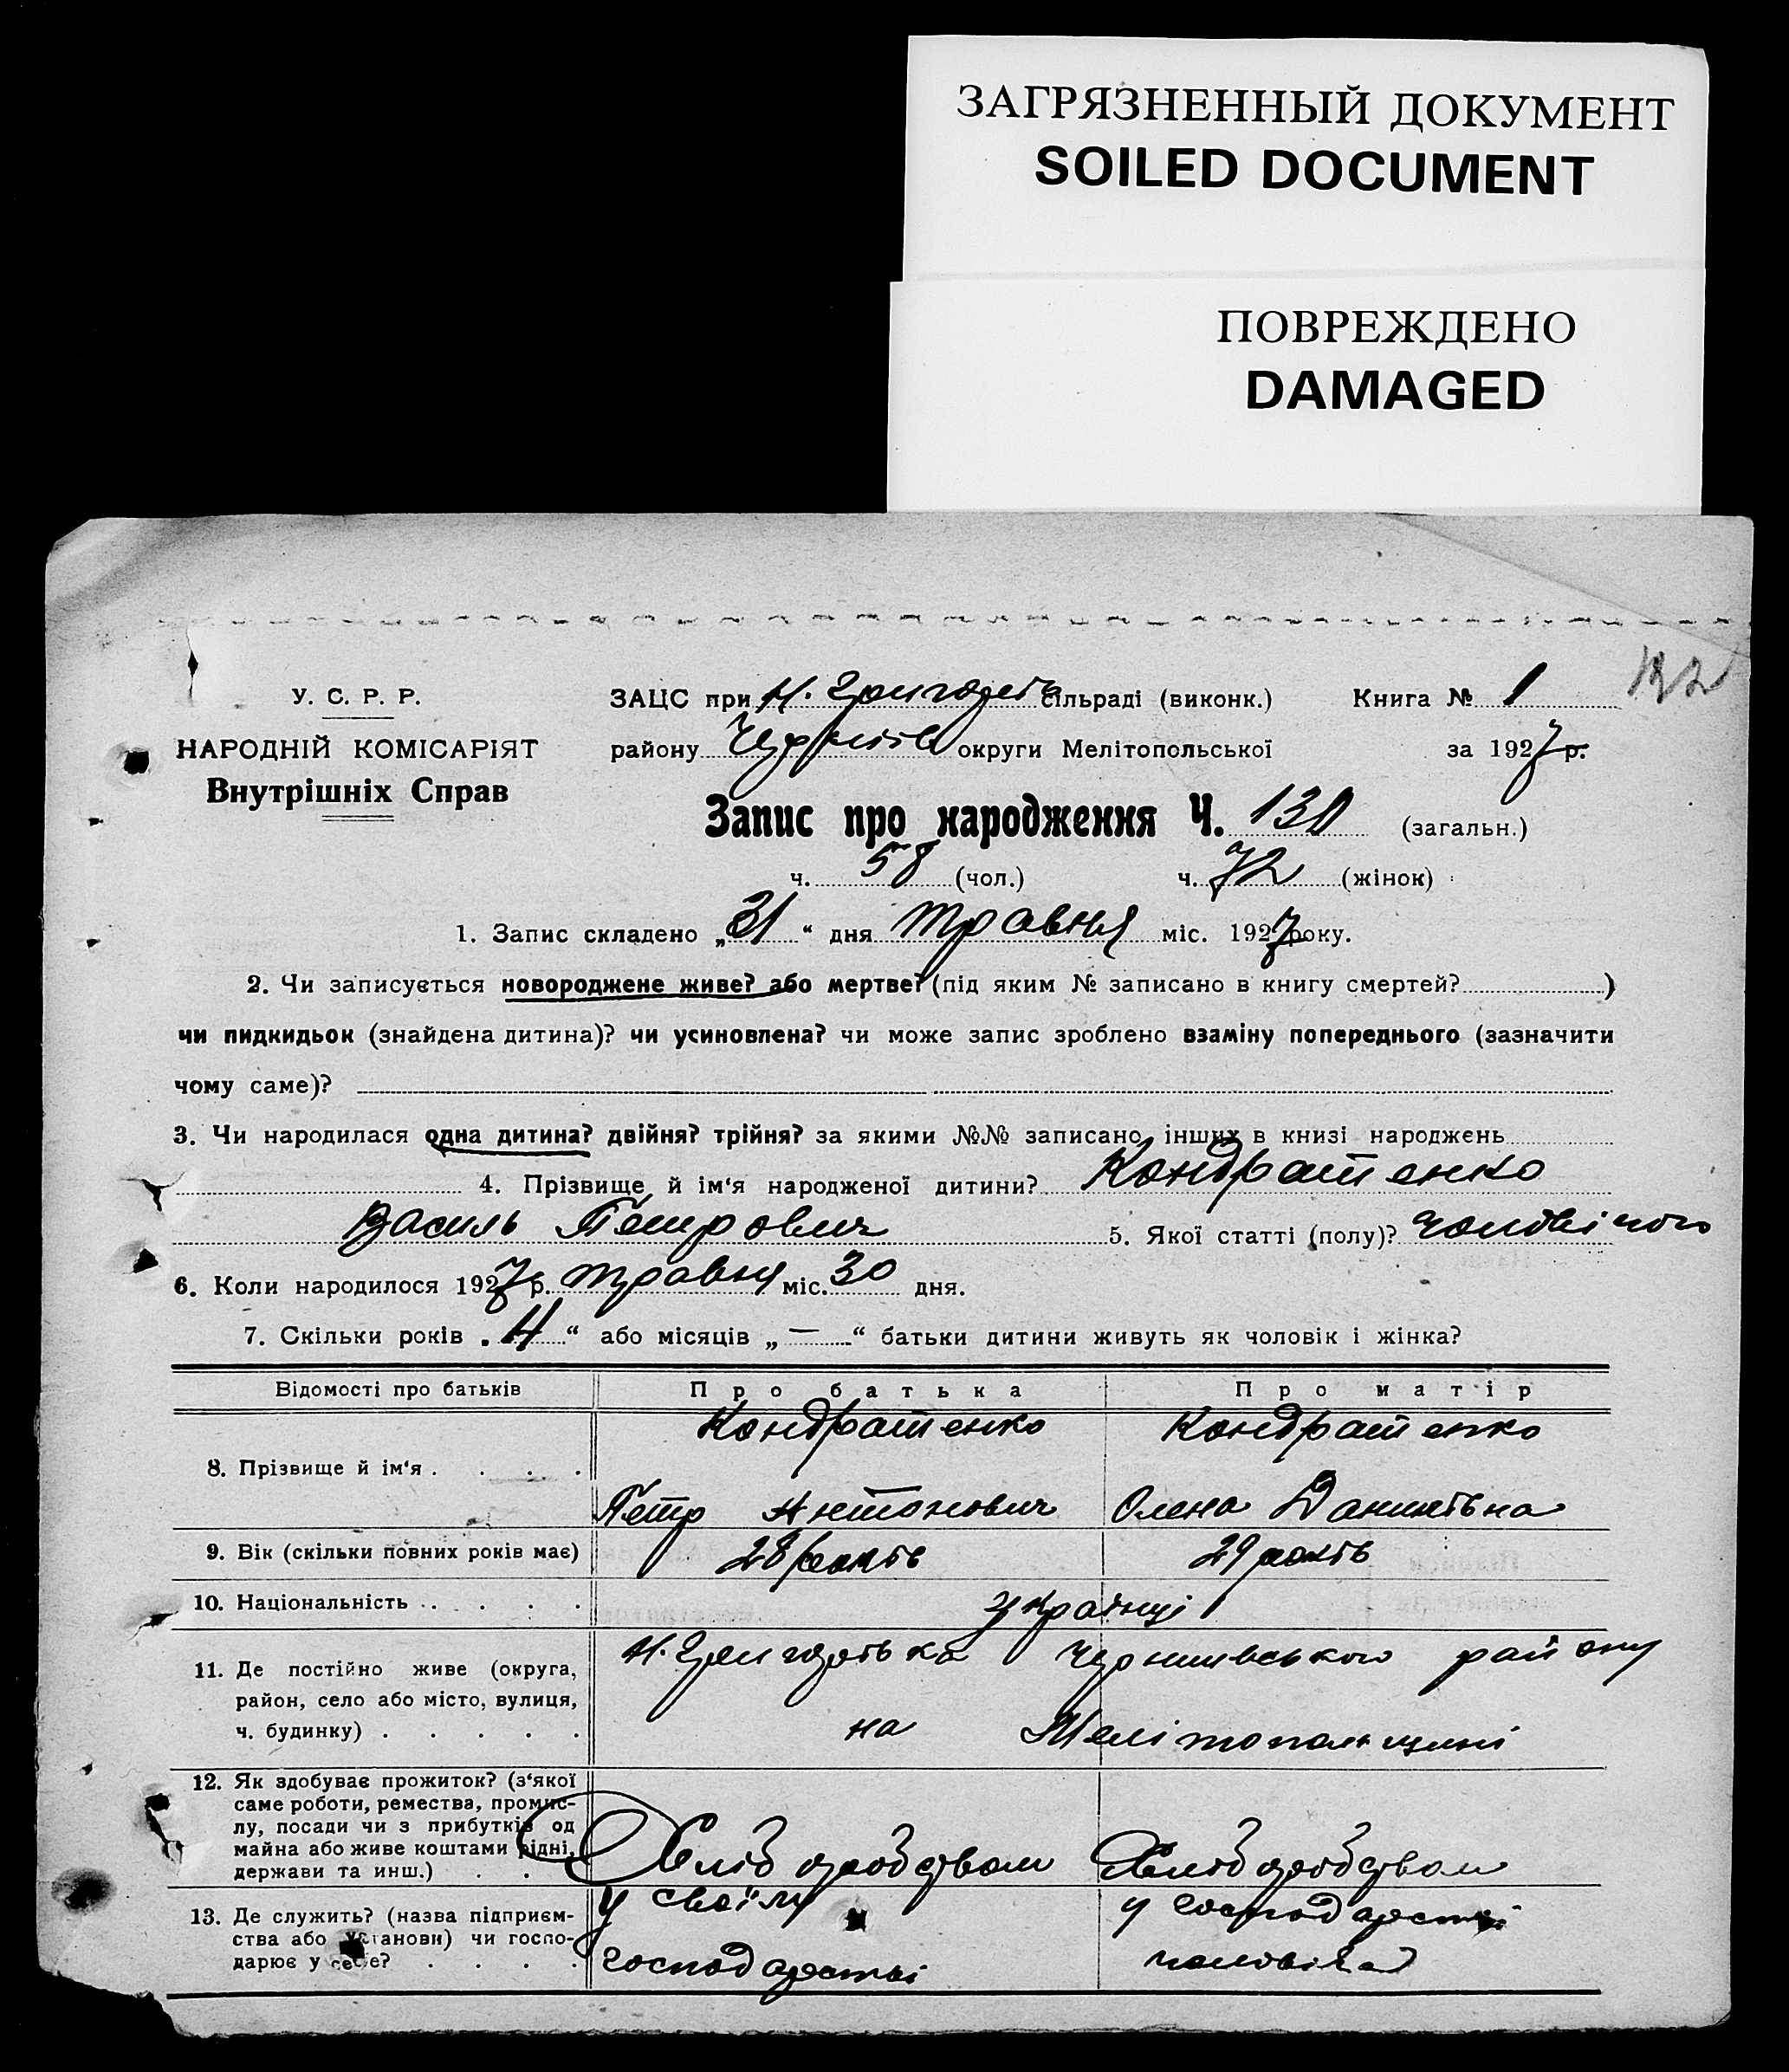 ЗАГРЯЗНЕННЫЙ ДОКУМЕНТ
SOILED DOCUMENT
ПОВРЕЖДЕНО
DAMAGED
У. С. Р. Р.
НАРОДНІЙ КОМІСАРІЯТ
Внутрішніх Справ
ЗАЦС при сільраді (виконк.) Книга № 1
району округи Мелітопольської за 1927 р.
Запис про народження Ч. 130 (загальн.)
ч. 58 (чол.) ч. 72 (жінок)
1. Запис складено „31“ дня травня міс. 1927 року.
2. Чи записується новороджене живе? або мертве? (під яким № записано в книгу смертей? )
чи пидкидьок (знайдена дитина)? чи усиновлена? чи може запис зроблено взаміну попереднього (зазначити
чому саме)?
3. Чи народилася одна дитина? двійня? трійня? за якими №№ записано інших в книзі народжень
4. Прізвище й ім‘я народженої дитини? Кондратенко
Василь Петрович 5. Якої статті (полу)? чоловічого
6. Коли народилося 1927 р. травня міс. 30 дня.
7. Скільки років „4“ або місяців „—“ батьки дитини живуть як чоловік і жінка?
Відомості про батьків Про батька Про матір
8. Прізвище й ім‘я . . . . Кондратенко Кондратенко
Петр Антонович Олена Данилівна
9. Вік (скільки повних років має) 28 років 29 років
10. Національність . . . . . українці
11. Де постійно живе (округа,
район, село або місто, вулиця,
ч. будинку) . . . . .
Н. Григорівка Чернигівського району
на Мелітопольщині
12. Як здобуває прожиток? (з‘якої
саме роботи, ремества, промис-
лу, посади чи з прибутків од
майна або живе коштами рідні,
держави та инш.) . . .
Хліборобством Хліборобством
13. Де служить? (назва підприєм-
ства або установи) чи госпо-
дарює у себе? . . . .
у своїм у господарстві
господарстві чоловіка